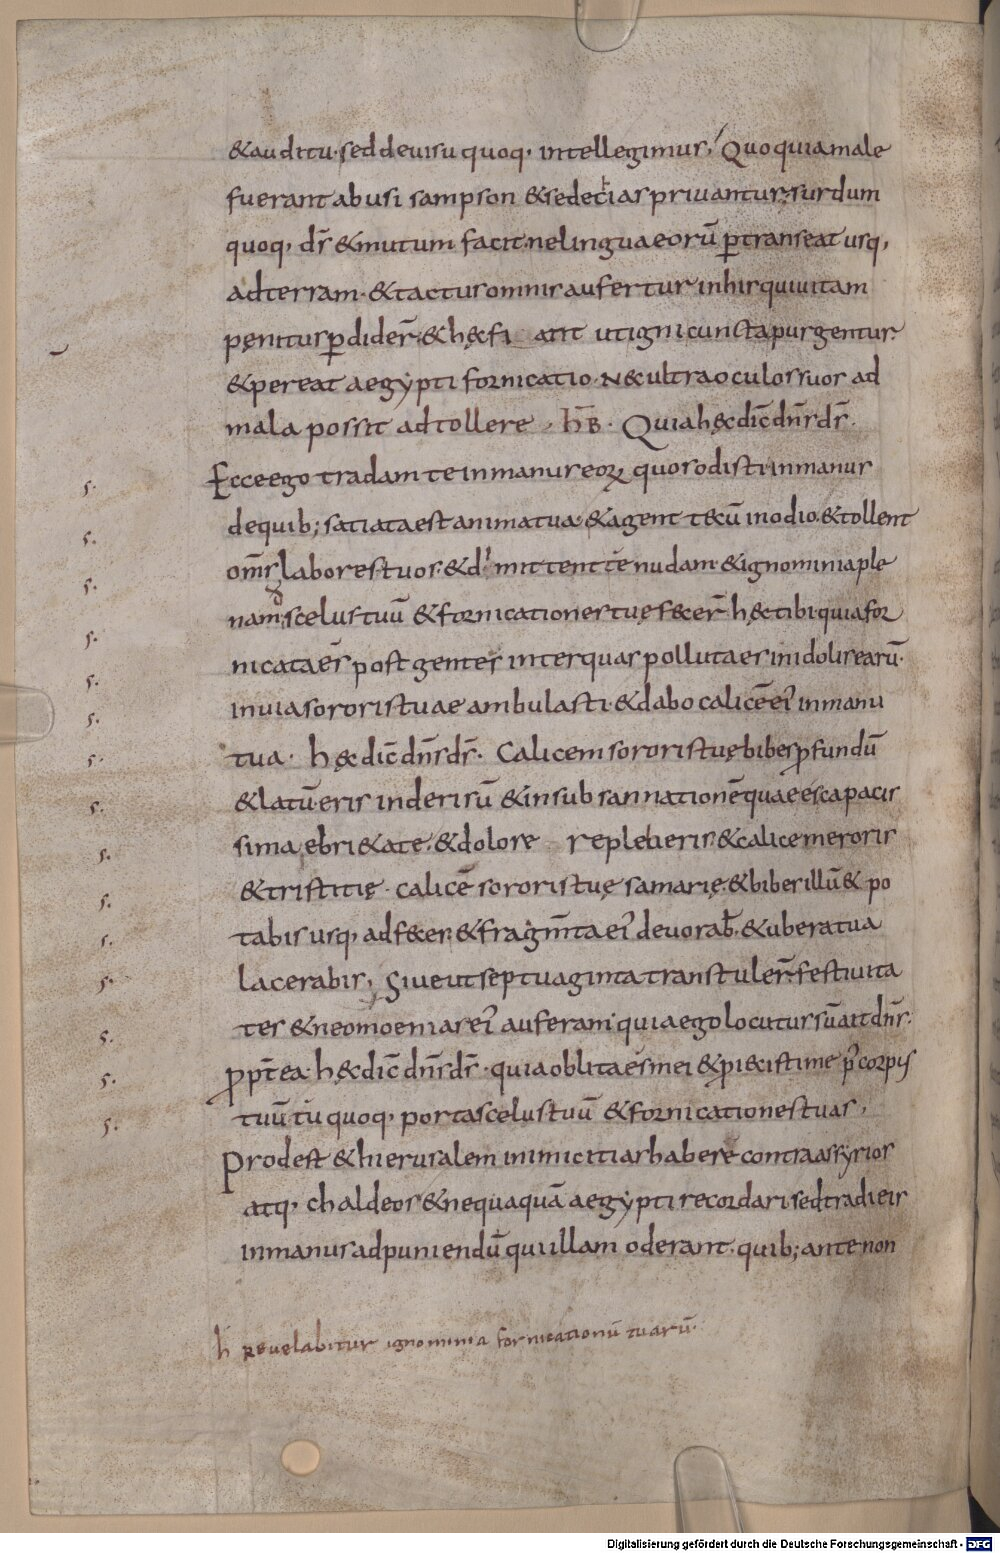 &auditu·sed deuisu quoq, intellegimus, Quo quia male
fuerant abusi sampson &sedechias priuantur; surdum
quoq, dr̄ &mutum facit. ne linguaeorū ꝑtranseat usq,
adterram·&tactusomnis aufertur inhis quiuitam
pęnitus ꝑdider̄·&hęc fiant utigni cuncta purgentur·
&pereat aegypti fornicatio·nec ultra oculos suos ad
mala possit adtollere· h̄B· Quia hęc dic̄ dn̄s ds̄·
Ecce ego tradam te inmanus eoꝝ quos odisti inmanus
dequib; satiata est anima tua·&agent tecū inodio·&tollent
om̄s labores tuos·& dimittent tē nudam·&ignominia ple
nam, scelus tuū &fornicationes tuę fecer̄ hęc tibi·quia for
nicata es̄ post gentes inter quas polluta es inidolis earū·
inuia sororis tuae ambulasti·&dabo calicē ei' inmanu
tua· hęc dic̄ dn̄s ds̄· Calicem sororis tuę bibes ꝓfundū
&latū·eris inderisū &insubsannationē quae es capacis
sima, ebrietate·&dolore repleberis·&calice meroris
&tristitię· calicē sororis tuę samarię·&bibes illū & po
tabis usq, ad feces·&fragm̄ta ei' deuorab̄·&ubera tua
lacerabis, Siue ut septuaginta transtuler̄· festiuita
tes &neomoenias ei' auferam·quia ego locutus sū ait dn̄s·
ꝓpt̄ea hęc dic̄ dn̄s ds̄· quia oblita es mei &ꝓiecisti me p' corpus
tuū tu quoq, porta scelus tuū &fornicationes tuas,
Prodest &hierusalem inimicitias habere contra assyrios
atq, chaldeos &nequaquā aegypti recordari sed tradi eis
inmanus adpuniendū qui illam oderant, quib; ante non
h̄ reuelabitur ignominia fornicationū tuarū·
Digitalisierung gefördert durch die Deutsche Forschungsgemeinschaft - DFG